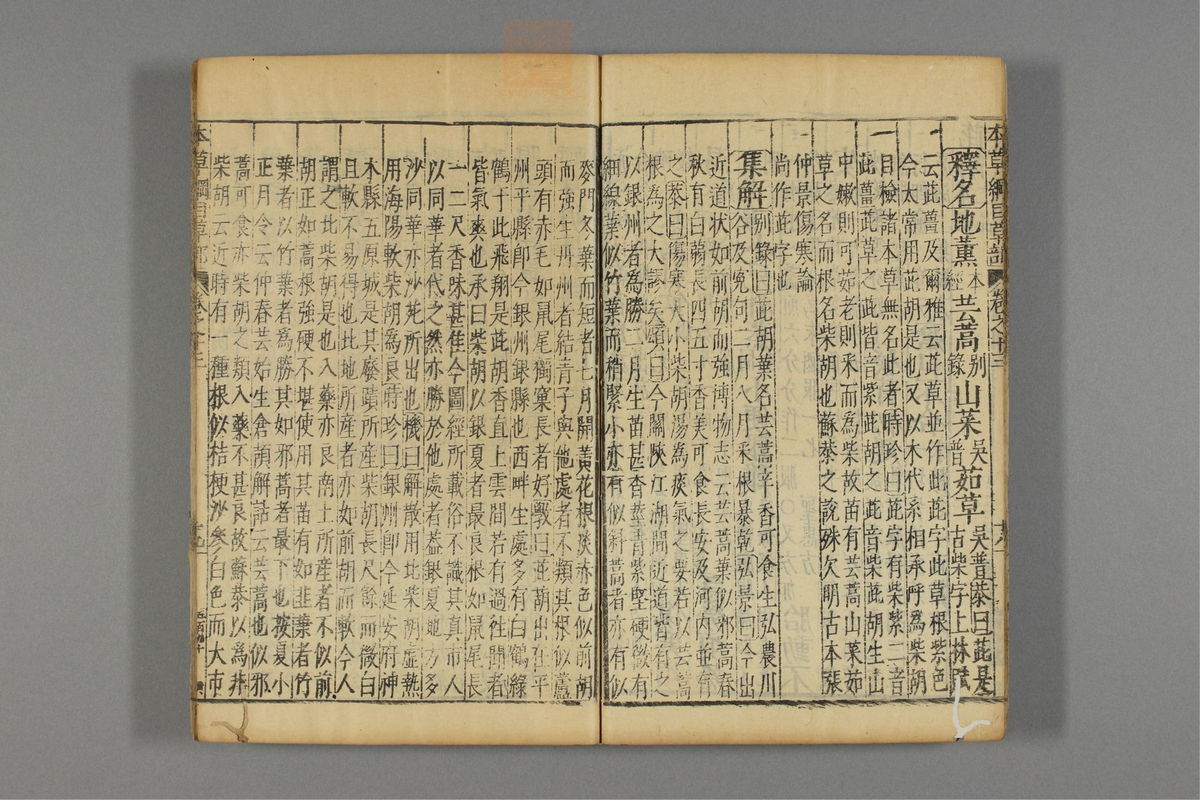 本草綱目草部 卷之十三
釋名地薰本經芸蒿别錄山菜吳普茹草吳普恭曰茈是古柴字上林賦
云茈薑及爾雅云茈草並作此茈字此草根紫色
今太常用茈胡是也又以木代系相承呼爲柴胡
目檢諸本草無名此者時珍曰茈字有柴紫二音
茈薑茈草之茈皆音紫茈胡之茈音柴茈胡生山
中嫩則可茹老則采而爲柴故苗有芸蒿山菜茹
草之名而根名柴胡也蘇恭之說殊欠明古本張
仲景傷寒論
尚作茈字也
集解别錄曰茈胡葉名芸蒿辛香可食生弘農川谷及寃句二月八月采根暴乾弘景曰今出
近道狀如前胡而強博物志云芸蒿葉似邪蒿春
秋有白蒻長四五寸香美可食長安及河内並有
之恭曰傷寒大小柴胡湯爲痰氣之要若以芸蒿
根為之大謬矣頌曰今關陝江湖間近道皆有之
以銀州者為勝二月生苗甚香莖青紫堅硬微有
細線葉似竹葉而稍緊小亦有似斜蒿者亦有似
麥門冬葉而短者七月開黄花根淡赤色似前胡
而強生丹州者結青子與他處者不類其根似蘆
頭有赤毛如鼠尾獨窠長者好斅曰茈胡出在平
州平縣即今銀州銀縣也西畔生處多有白鶴綠
鶴于此飛翔是茈胡香直上雲間若有過往聞者
皆氣爽也承曰柴胡以銀夏者最良根如鼠尾長
一二尺香味甚佳今圖經所載俗不識其真市人
以同華者代之然亦勝於他處者蓋銀夏地方多
沙同華亦沙苑所出也機曰解散用北柴胡虛熱
用海陽軟柴胡爲良時珍曰銀州即今延安府神
木縣五原城是其廢蹟所産柴胡長尺餘而微白
且軟不易得也北地所産者亦如前胡而軟今人
謂之北柴胡是也入藥亦良南土所産者不似前
胡正如蒿根強硬不堪使用其苗有如韭葉者竹
葉者以竹葉者爲勝其如邪蒿者最下也按夏小
正月令云仲春芸始生倉頡解詁云芸蒿也似邪
蒿可食亦柴胡之類入藥不甚良故蘇恭以爲非
柴胡云近時有一種根似桔梗沙參白色而大市
本草綱目草部 卷之十三